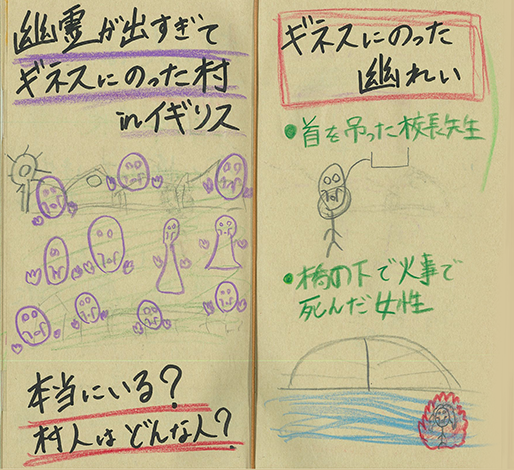 幽霊が出すぎて
ギネスにのった村
inイギリス
本当にいる？
村人はどんな人？
ギネスにのった
幽れい
●首を吊った校長先生
●橋の下で火事で
死んだ女性